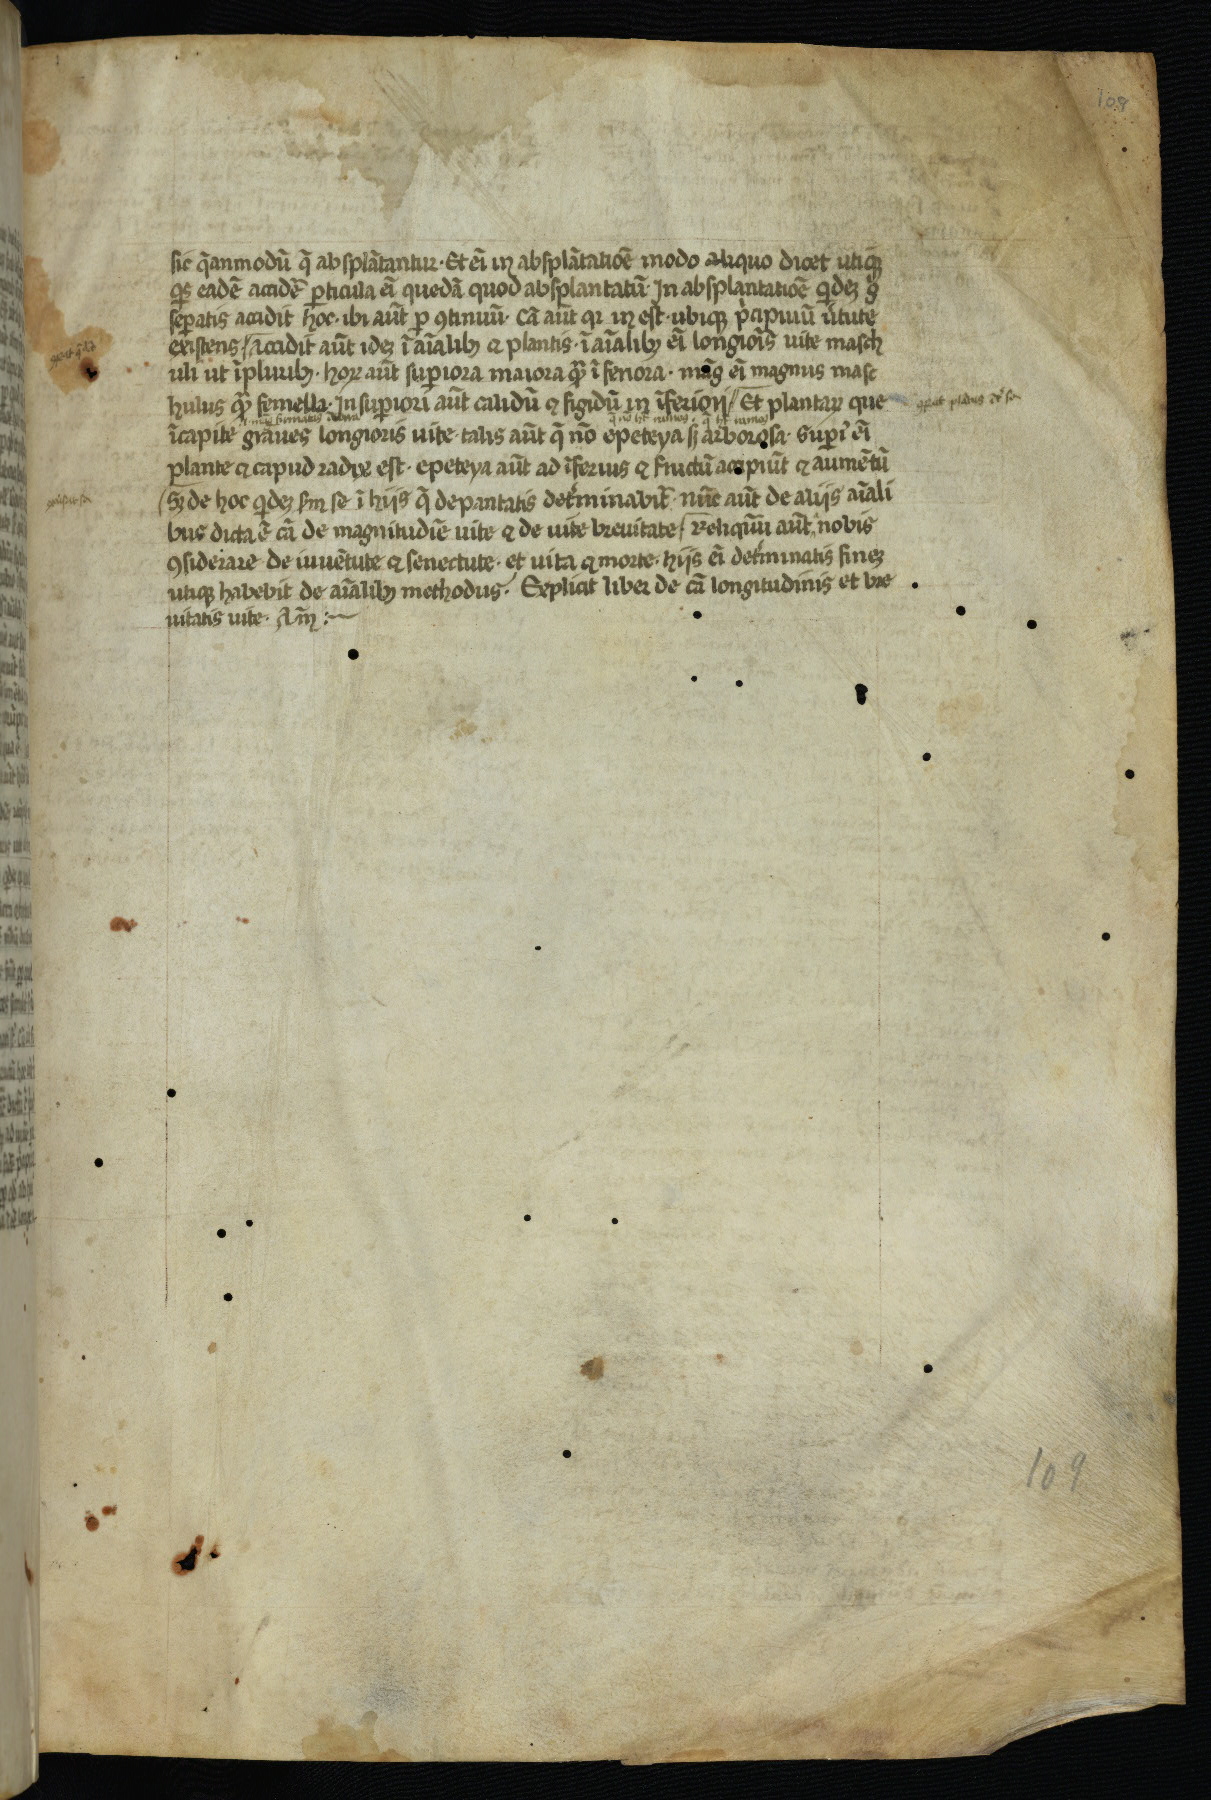 108
sic q̃anmodũ q̃ absplãtantur · Et eĩ in absplãtatiõe modo aliquo dicet utiq̃
eadẽ accidẽ ꝑticula eĩ quedã quod absplantatũ · In absplantatiõe q̇dez g̊
seꝑatis accidit hoc · ibi aũt ꝑ ꝯtinuũ · cã aũt qr inest · ubiqꝫ p̃cipiuũ ũtute
existens / accidit aũt idez ĩ aĩalibꝫ ⁊ plantis · ĩ aĩalibꝫ eĩ longioris uite masch
uli ut ĩpluribꝫ · hoꝝ aũt suꝑiora maiora q̃ ĩferiora · mag̃ eĩ magnus masc
hulus q̃ femella · In suꝑiori aũt calidũ ⁊ figidũ in ĩferiori / Et plantaꝝ que
ĩcapite graues longioris uite · talis aũt q̃ nõ epeteya sꝫ arborosa · Suꝑi᷒ eĩ
plante ⁊ capud radix est · epeteya aũt ad ĩferius ⁊ fructũ accipiũt ⁊ aumẽtũ
Sꝫ de hoc q̇dez sm̃ se ĩ hijs q̃ de pantatis det̃minabit̃ · nũc aũt de alijs aĩali
bus dicta ẽ cã de magnitudiẽ uite ⁊ de uite breuitate / Reliquũ aũt nobis
ꝯsiderare de iuuẽtute ⁊ senectute · et uita ⁊ morte · hijs eĩ det̃minatis finez
utiqꝫ habebit de aĩalibꝫ methodus · Explicit liber de cã longitudinis et bre
uitatis uite · Am̃ :~
109